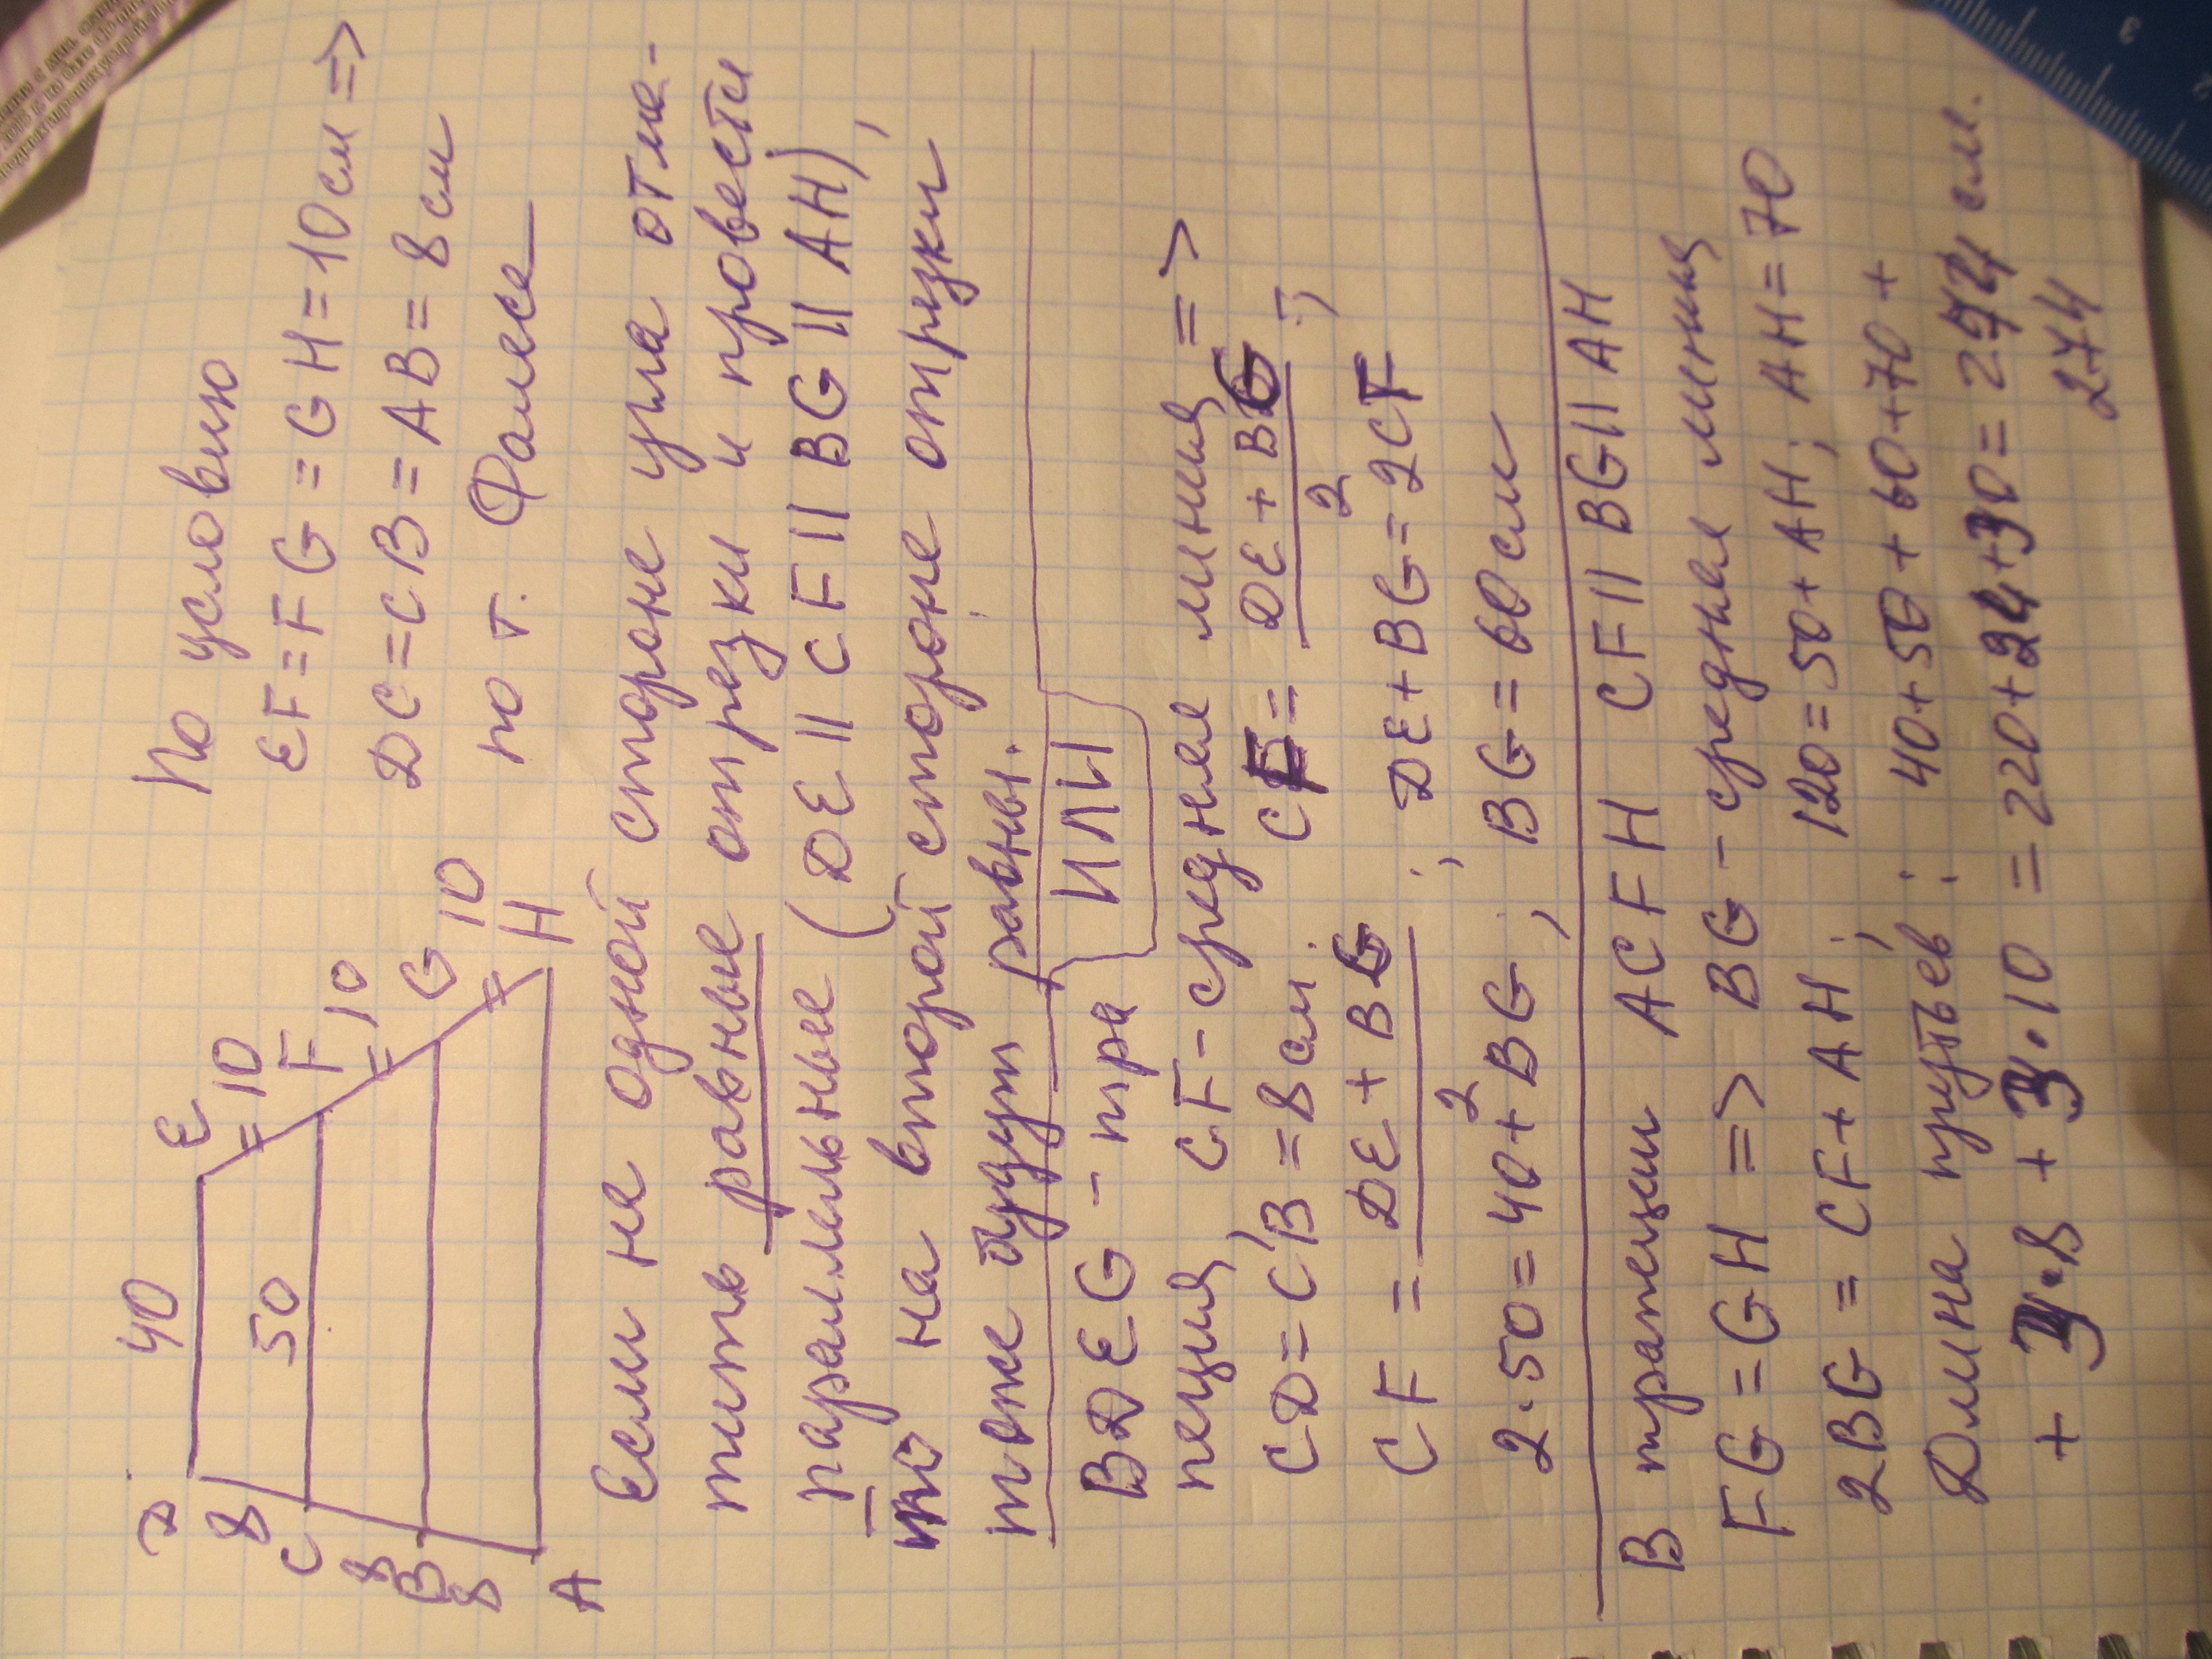 По условию
EF = FG = GH = 10 см =>
DC = CB = AB = 8 см
по т. Фалеса
D 40 E
8 10
C 50 F
8 10
B G
8 10
A H
Если на одной стороне угла отме-
тить равные отрезки и провести
параллельные (DE || CF || BG || AH),
то на второй стороне отрезки
тоже будут равны.
ИЛИ
BDEG - тра
пеция, CF - средняя линия =>
CD = CB = 8 см. CF = DE + BG / 2 ;
CF = DE + BG / 2 ; DE + BG = 2CF
2·50 = 40 + BG ; BG = 60 см
В трапеции ACFH CF || BG || AH
FG = GH => BG - средняя линия
2BG = CF + AH ; 120 = 50 + AH ; AH = 70
Длина прутьев : 40 + 50 + 60 + 70 +
+ 3·8 + 3·10 = 220 + 24 + 30 = 274 см.
274